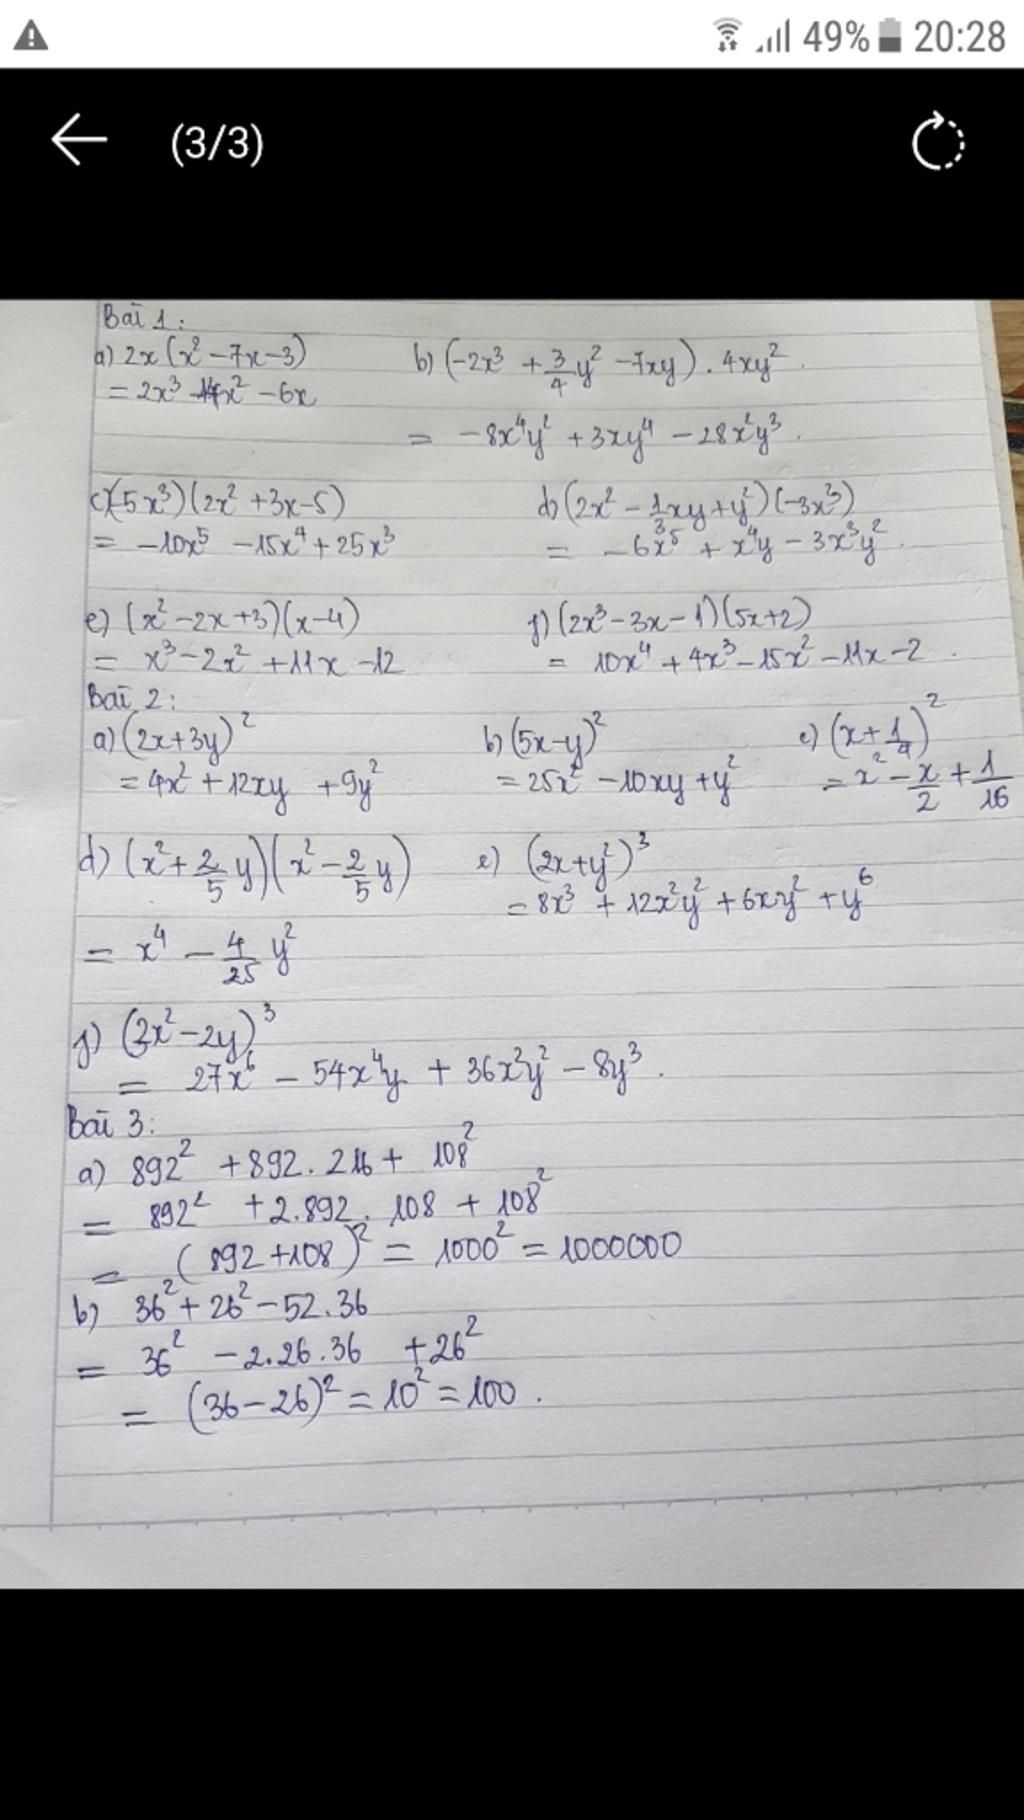 49% 20:28
(3/3)
Bài 1:
a) 2x(x² - 7x - 3)
= 2x³ - 14x² - 6x
b) (-2x³ + 3/4 y² - 7xy) . 4xy²
= -8x⁴y² + 3xy⁴ - 28x²y³.
c) (-5x³)(2x² + 3x - 5)
= -10x⁵ - 15x⁴ + 25x³
d) (2x² - 1/3 xy + y²)(-3x³)
= -6x⁵ + x⁴y - 3x³y².
e) (x² - 2x + 3)(x - 4)
= x³ - 2x² + 11x - 12
f) (2x³ - 3x - 1)(5x + 2)
= 10x⁴ + 4x³ - 15x² - 11x - 2.
Bài 2:
a) (2x + 3y)²
= 4x² + 12xy + 9y²
b) (5x - y)²
= 25x² - 10xy + y²
c) (x + 1/4)²
= x² - x/2 + 1/16
d) (x² + 2/5 y)(x² - 2/5 y)
= x⁴ - 4/25 y²
e) (2x + y²)³
= 8x³ + 12x²y² + 6xy² + y⁶
f) (3x² - 2y)³
= 27x⁶ - 54x⁴y + 36x²y² - 8y³.
Bài 3:
a) 892² + 892 . 216 + 108²
= 892² + 2.892 . 108 + 108²
= (892 + 108)² = 1000² = 1000000
b) 36² + 26² - 52.36
= 36² - 2.26.36 + 26²
= (36 - 26)² = 10² = 100.